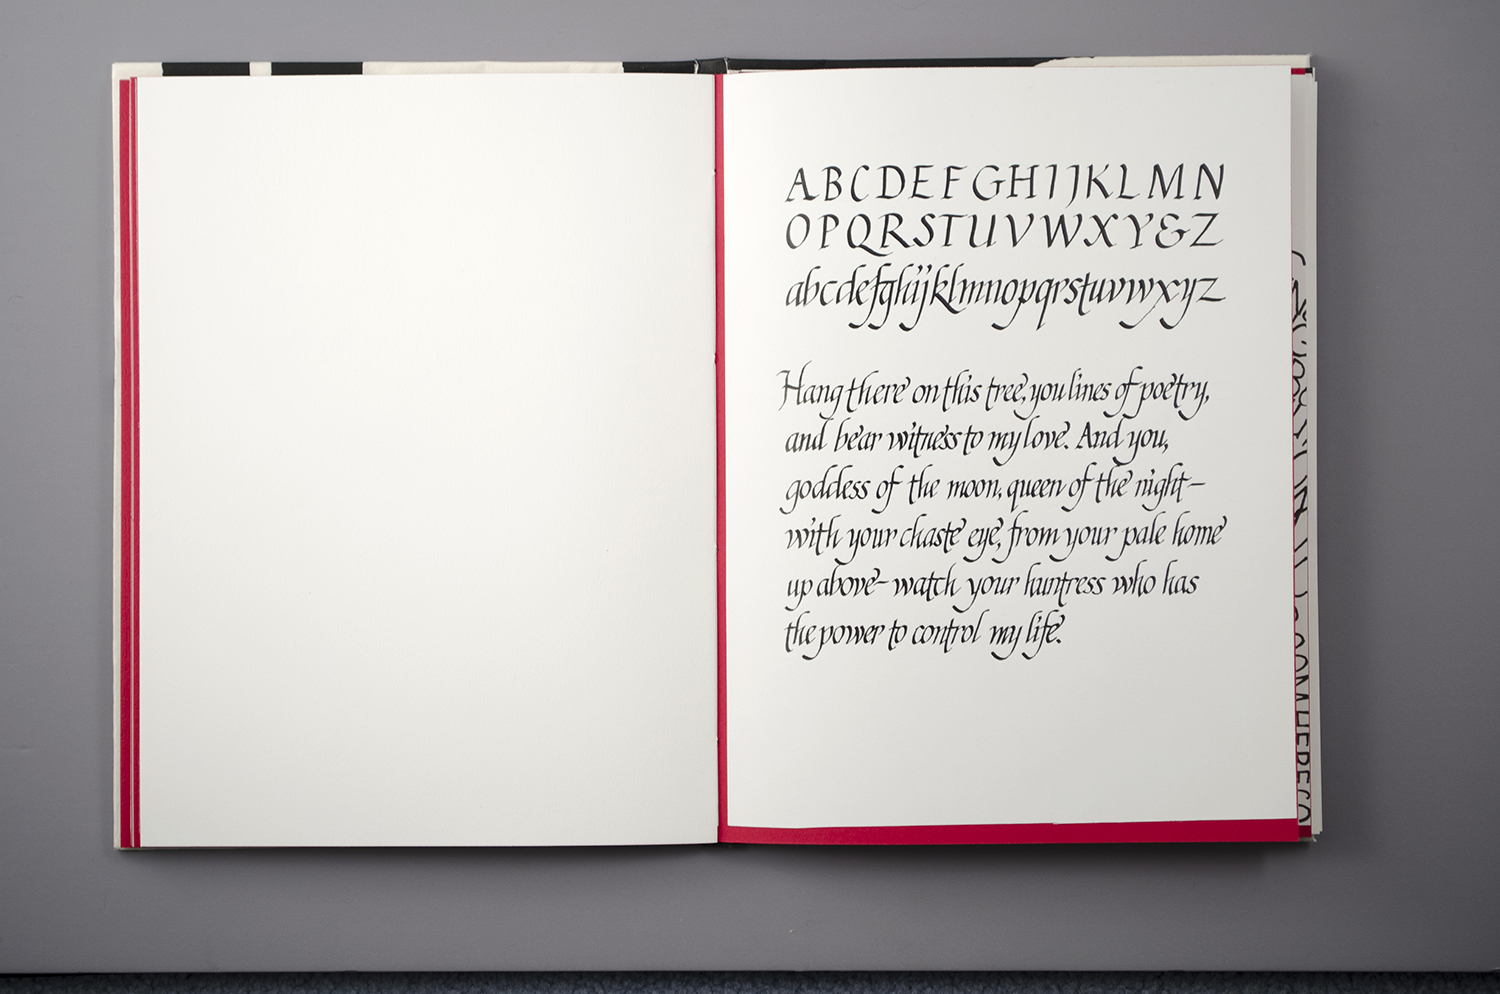 ABCDEFGHIJKLMN
OPQRSTUVWXY&Z
abcdefghijklmnopqrstuvwxyz
Hang there on this tree, you lines of poetry,
and bear witness to my love. And you,
goddess of the moon, queen of the night–
with your chaste eye, from your pale home
up above– watch your huntress who has
the power to control my life.